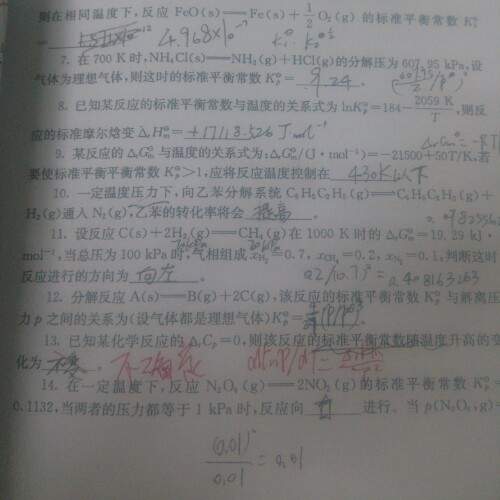 则在相同温度下,反应 FeO(s)══Fe(s)+1/2 O₂(g) 的标准平衡常数 K
4.968×10
7. 在 700 K 时,NH₄Cl(s)══NH₃(g)+HCl(g)的分解压为 607.95 kPa,设
气体为理想气体,则这时的标准平衡常数 K = 9.24.
8. 已知某反应的标准平衡常数与温度的关系式为 lnK =184-2059 K/T,则反
应的标准摩尔焓变 ΔᵣH = +17118.526 J·mol⁻¹
9. 某反应的 ΔᵣG 与温度的关系式为:ΔᵣG /(J·mol⁻¹)=-21500+50T/K,若
要使标准平衡平衡常数 K >1,应将反应温度控制在 430K以下
10. 一定温度压力下,向乙苯分解系统 C₆H₅C₂H₅(g)══C₆H₅C₂H₃(g)+
H₂(g)通入 N₂(g),乙苯的转化率将会 提高 .
11. 设反应 C(s)+2H₂(g)══CH₄(g)在 1000 K 时的 ΔᵣG =19.29 kJ·
mol⁻¹,当总压为 100 kPa 时,气相组成 =0.7, x_CH₄=0.2, x_N₂=0.1,判断这时
反应进行的方向为 向左 . 0.2/(0.7)² = 0.408163263
12. 分解反应 A(s)══B(g)+2C(g),该反应的标准平衡常数 K 与解离压
力 p 之间的关系为(设气体都是理想气体)K =
13. 已知某化学反应的 ΔᵣCₚ=0,则该反应的标准平衡常数随温度升高的变
化为 不变 . 不确定
14. 在一定温度下,反应 N₂O₄(g)══2NO₂(g) 的标准平衡常数 K =
0.1132,当两者的压力都等于 1 kPa 时,反应向 右 进行。当 p(N₂O₄,g)=
(0.01)²/0.01 = 0.01